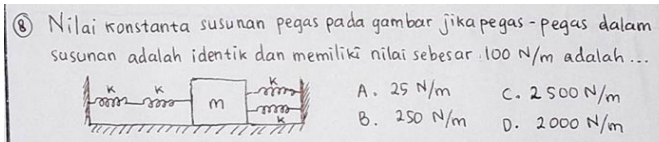 ⑧ Nilai konstanta susunan pegas pada gambar jika pegas-pegas dalam
susunan adalah identik dan memiliki nilai sebesar 100 N/m adalah...
K K m K K
A. 25 N/m C. 2500 N/m
B. 250 N/m D. 2000 N/m